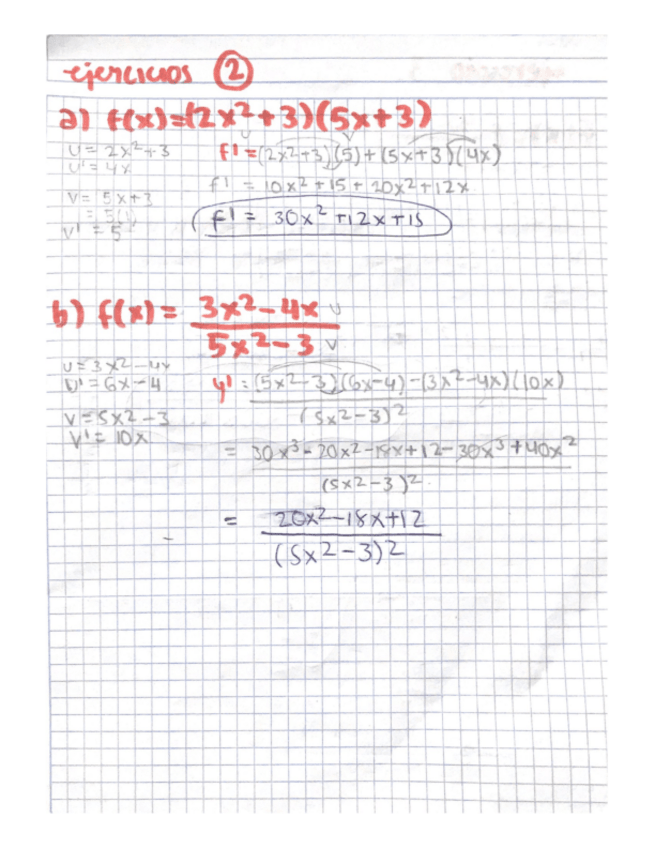 ejercicios 2
a) f(x)=(2x²+3)(5x+3)
u v
u = 2x²+3
u' = 4x
v = 5x+3
= 5(1)
v' = 5
f' = (2x²+3)(5)+(5x+3)(4x)
f' = 10x²+15+20x²+12x
f' = 30x²+12x+15
b) f(x) = 3x²-4x u
5x²-3 v
u = 3x²-4x
u' = 6x-4
v = 5x²-3
v' = 10x
y' = (5x²-3)(6x-4)-(3x²-4x)(10x)
(5x²-3)²
= 30x³-20x²-18x+12-30x³+40x²
(5x²-3)²
= 20x²-18x+12
(5x²-3)²